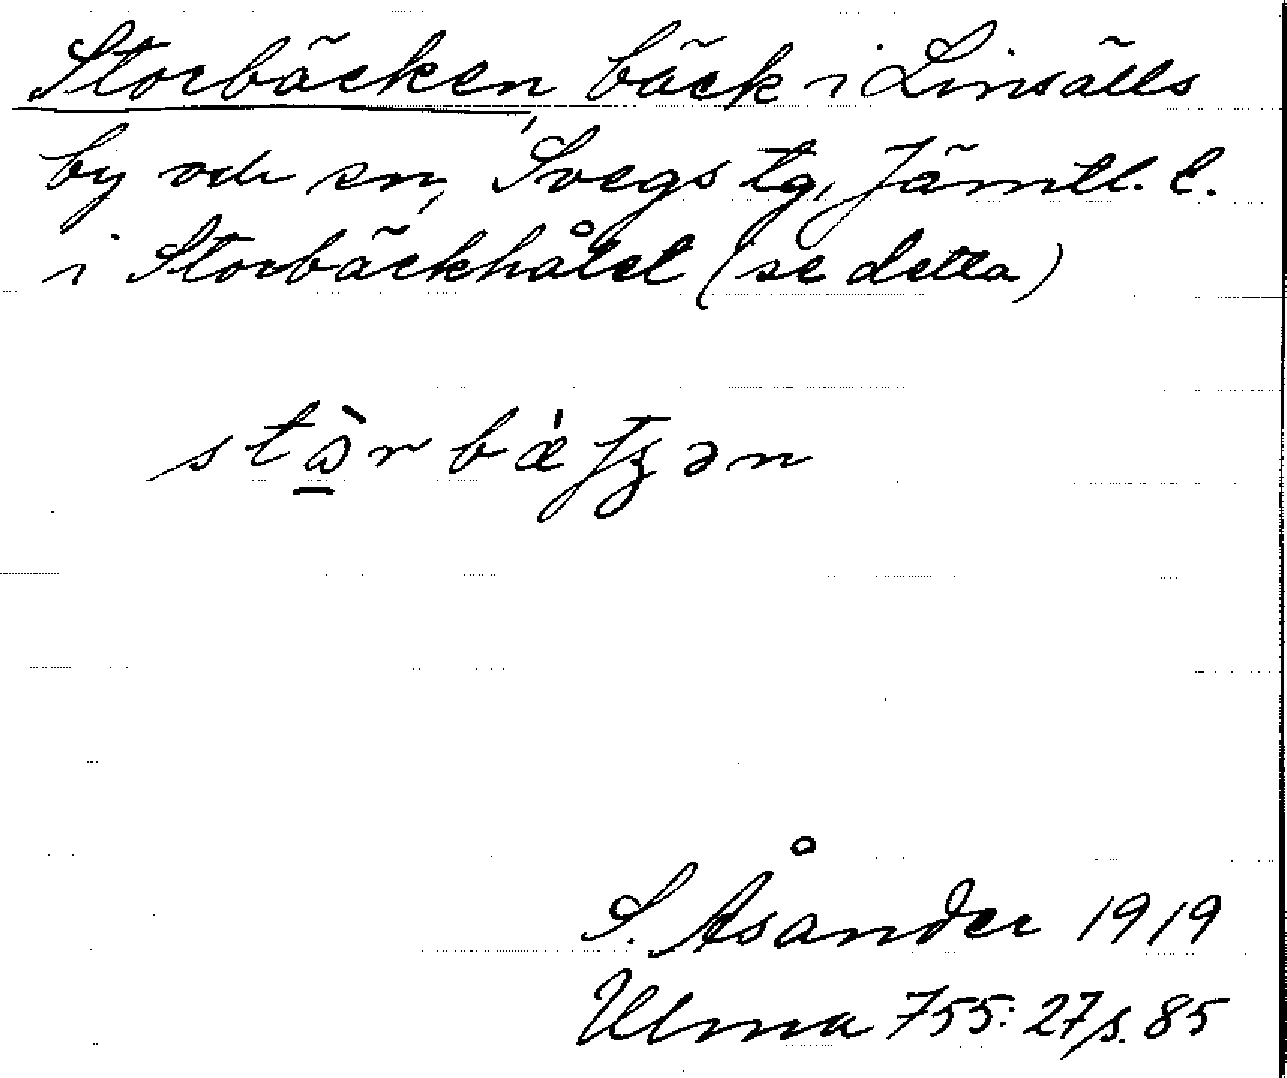 Storbäcken, bäck i Linsälls
by och sn, Svegs tg, Jämtl. l.
i Storbäckhålet (se detta)
S. Åsander 1919
Ulma 755: 27 s. 85